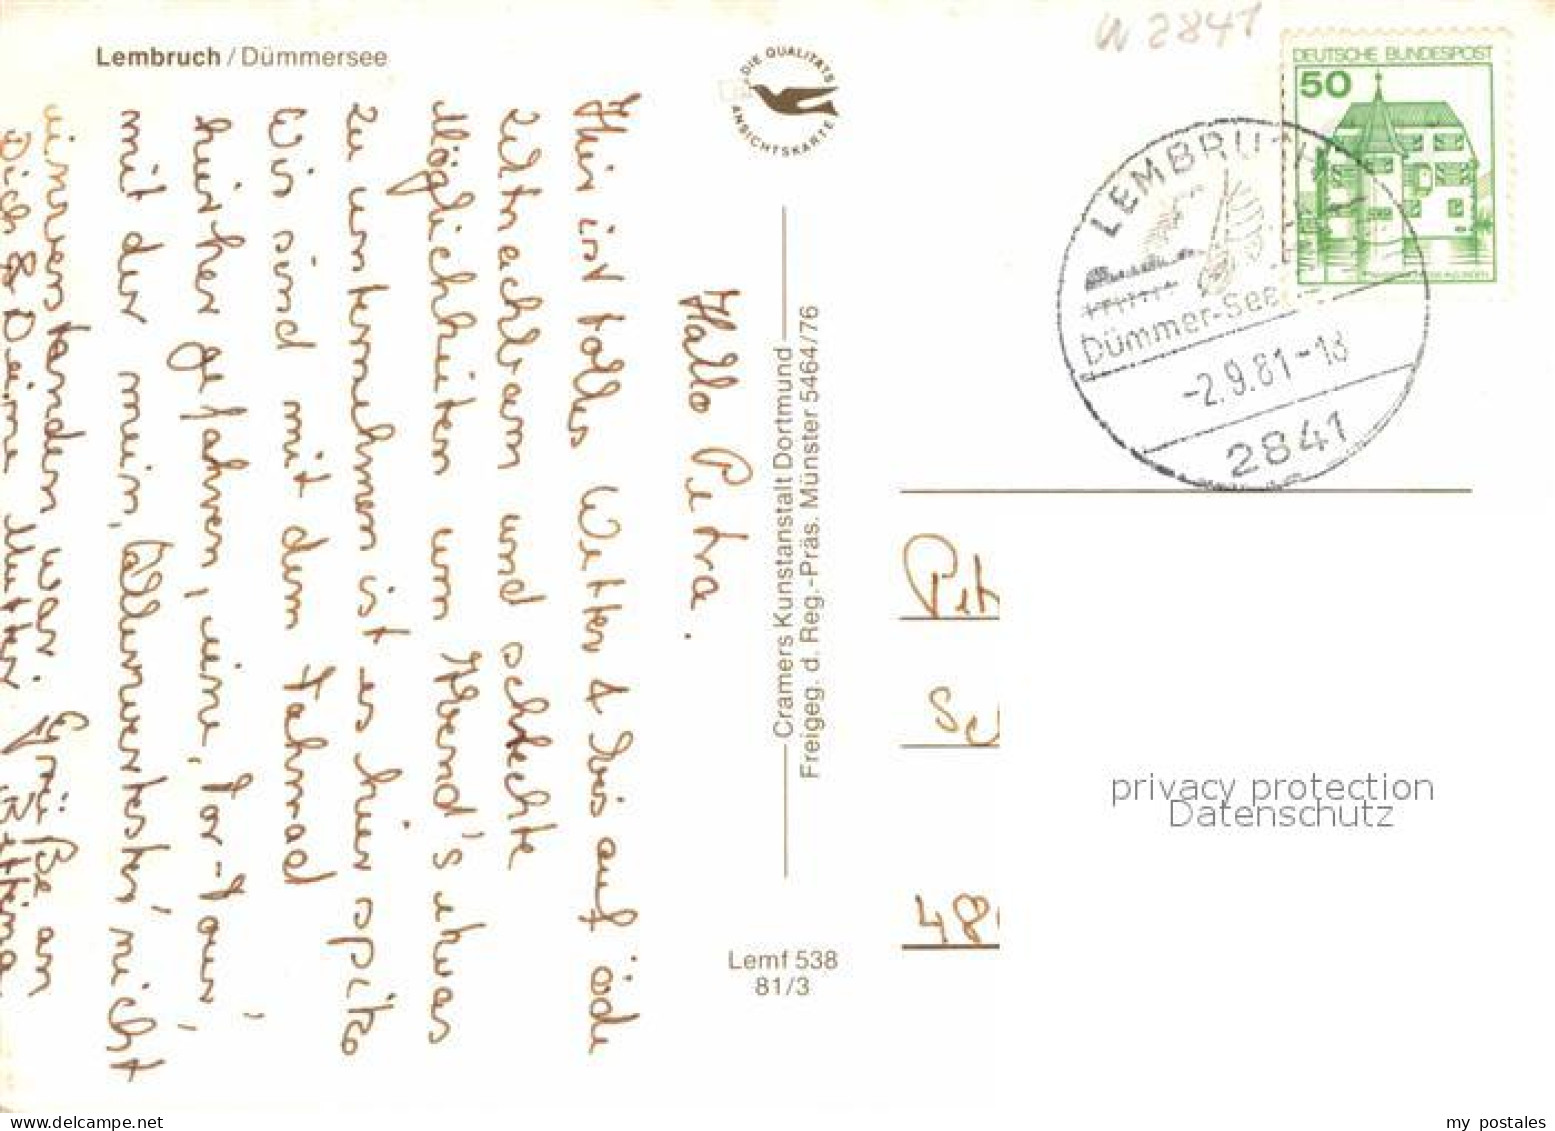 Lembruch / Dümmersee
DIE QUALITÄTS
ANSICHTSKARTE
W 2841
DEUTSCHE BUNDESPOST
50
LEMBRUCH
Dümmer-See
-2.9.81-18
2841
Hallo Petra.
Hier ist tolles Wetter & bis auf öde
Zeltnachbarn und schlechte
Möglichkeiten um Abend's etwas
zu unternehmen ist es hier spitze
Wir sind mit dem Fahrrad
hierher gefahren, eine 'Tor-tour',
mit der mein 'Allerwertester' nicht
einverstanden war. Grüße an
Dich & Deine Mutter. Bettina
Cramers Kunstanstalt Dortmund
Freigeg. d. Reg.-Präs. Münster 5464/76
Lemf 538
81/3
Pet
Sc
48
privacy protection
Datenschutz
my postales